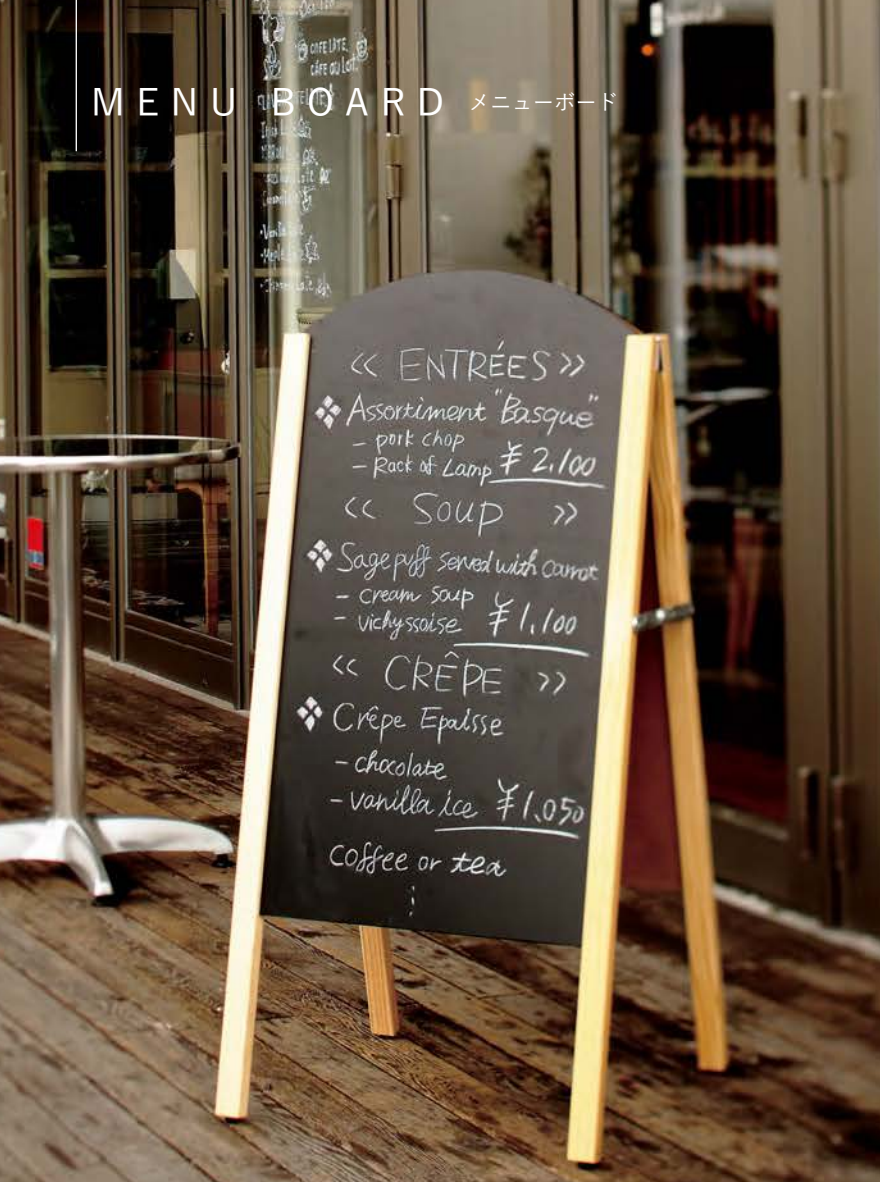 CAFE LATE.
CAFE au Lait.
MENU BOARD メニューボード
<< ENTRÉES >>
Assortiment "Basque"
- pork chop
- Rack of Lamp ¥2.100
<< Soup >>
Sage puff served with carrot
- cream soup
- vichyssoise ¥1,100
<< CRÊPE >>
Crêpe Epaisse
- chocolate
- vanilla ice ¥1,050
coffee or tea